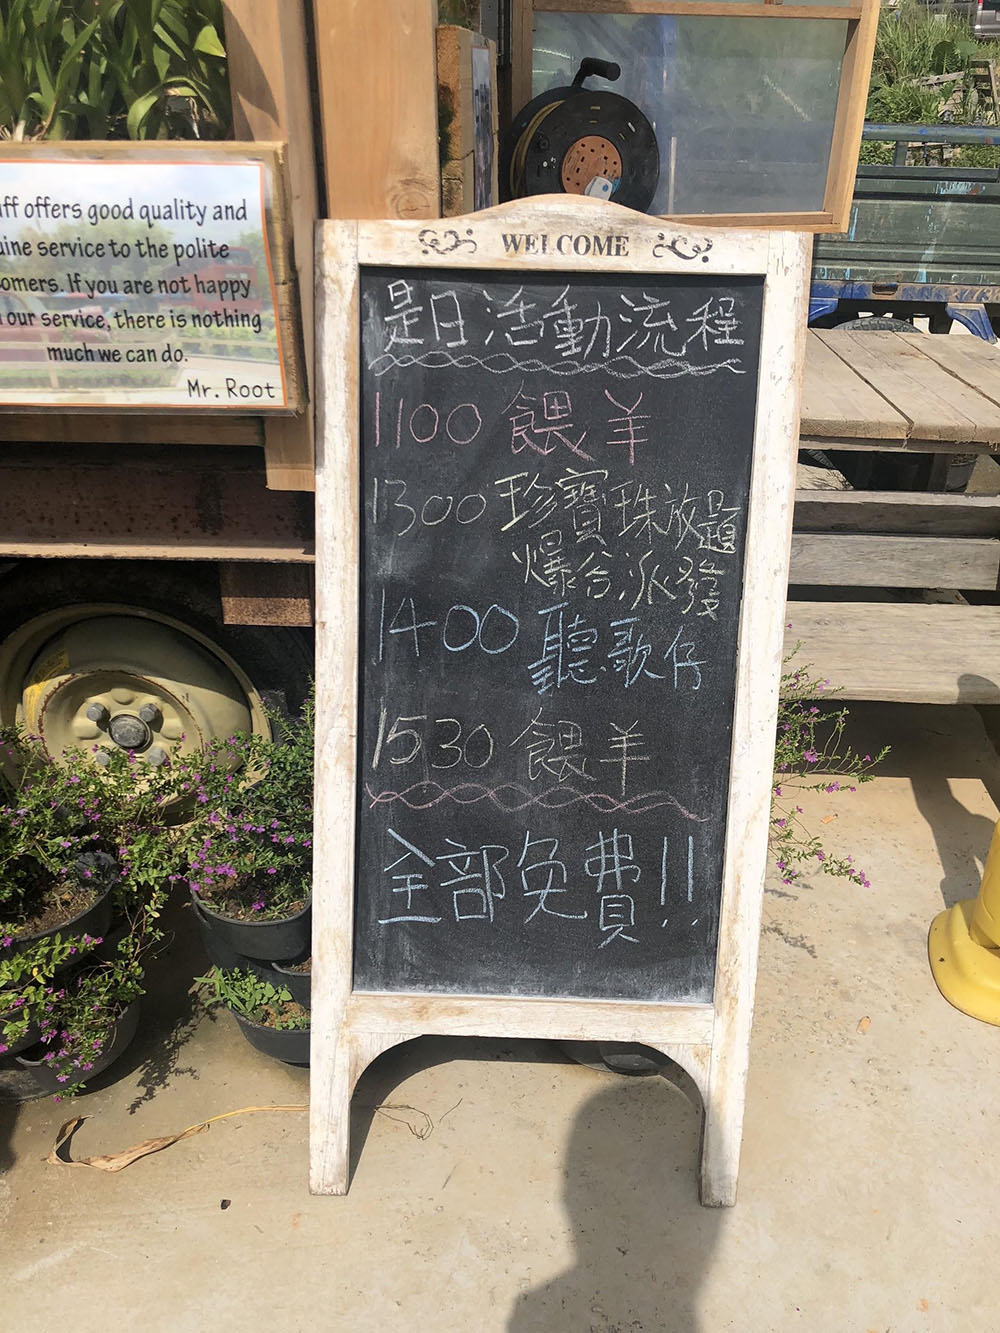 ff offers good quality and
ine service to the polite
omers. If you are not happy
our service, there is nothing
much we can do.
Mr. Root
WELCOME
是日活動流程
1100 餵羊
1300 珍寶珠放題
爆谷派發
1400 聽歌仔
1530 餵羊
全部免費!!